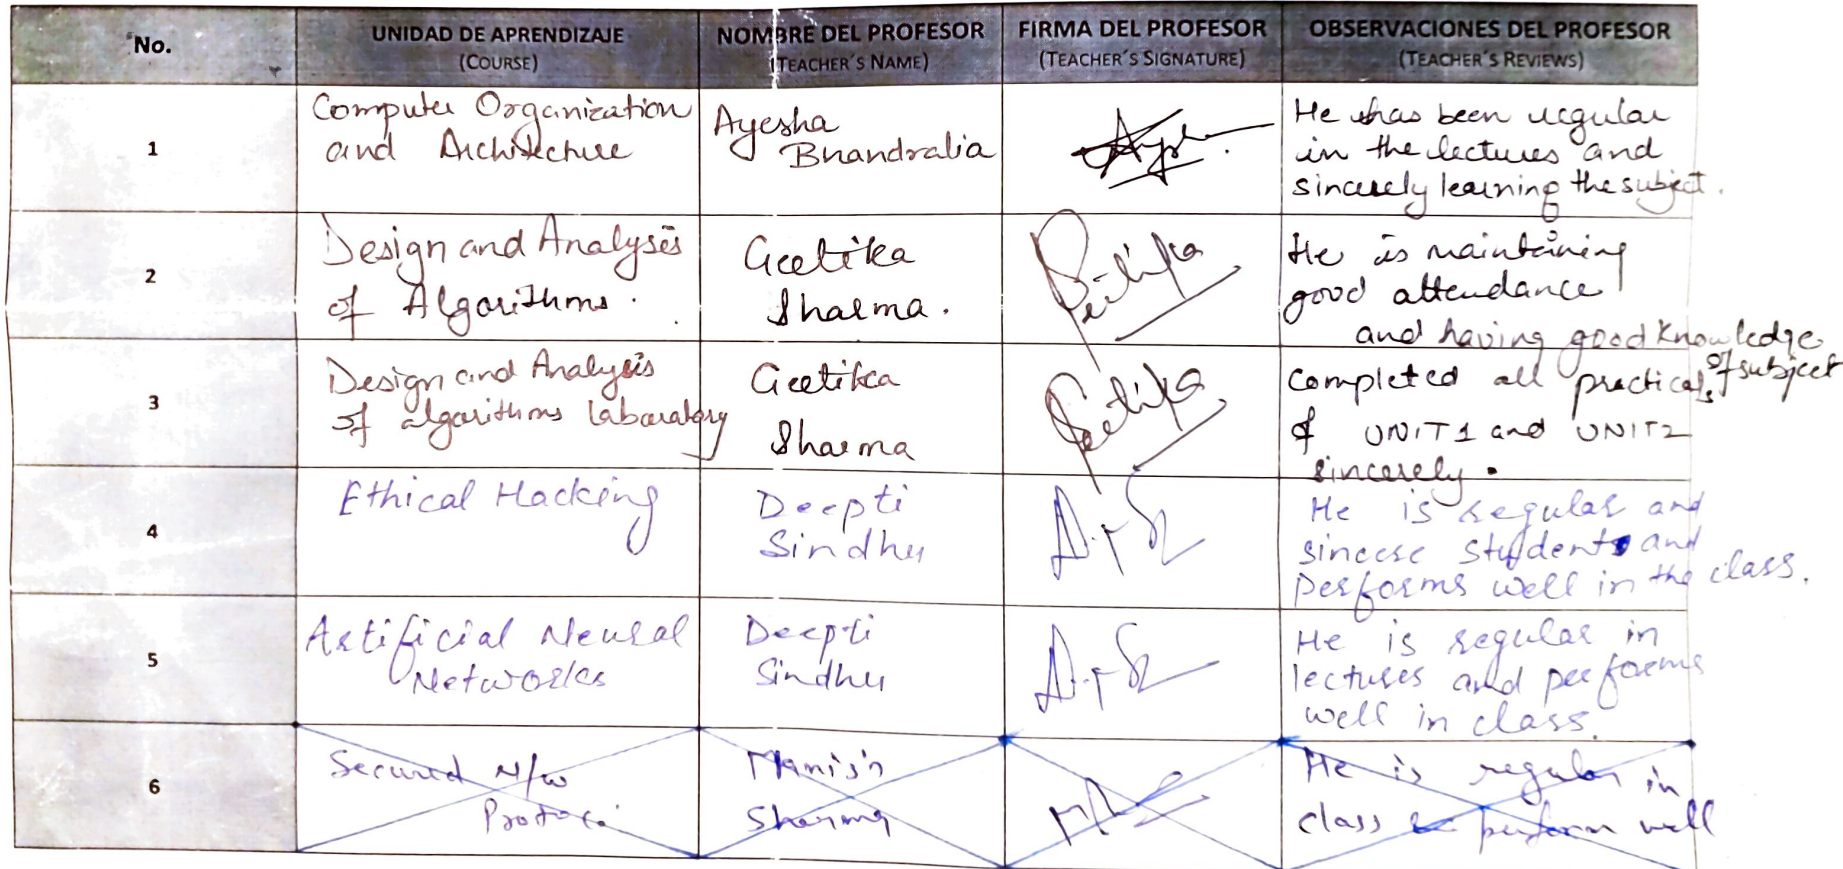 No.
UNIDAD DE APRENDIZAJE
(COURSE)
NOMBRE DEL PROFESOR
(TEACHER´S NAME)
FIRMA DEL PROFESOR
(TEACHER´S SIGNATURE)
OBSERVACIONES DEL PROFESOR
(TEACHER´S REVIEWS)
1
Computer Organization
and Architecture
Ayesha
Bhandralia
He has been regular
in the lectures and
sincerely learning the subject.
2
Design and Analysis
of Algorithms.
Geetika
Sharma.
He is maintaining
good attendance
and having good knowledge
of subject
3
Design and Analysis
of algorithms laboratory
Geetika
Sharma
Completed all practicals
of UNIT1 and UNIT2
sincerely.
4
Ethical Hacking
Deepti
Sindhu
He is regular and
sincere student and
performs well in the class.
5
Artificial Neural
Networks
Deepti
Sindhu
He is regular in
lectures and performs
well in class.
6
Secured N/w
Manish
Sharma
He is regular in
class perform well